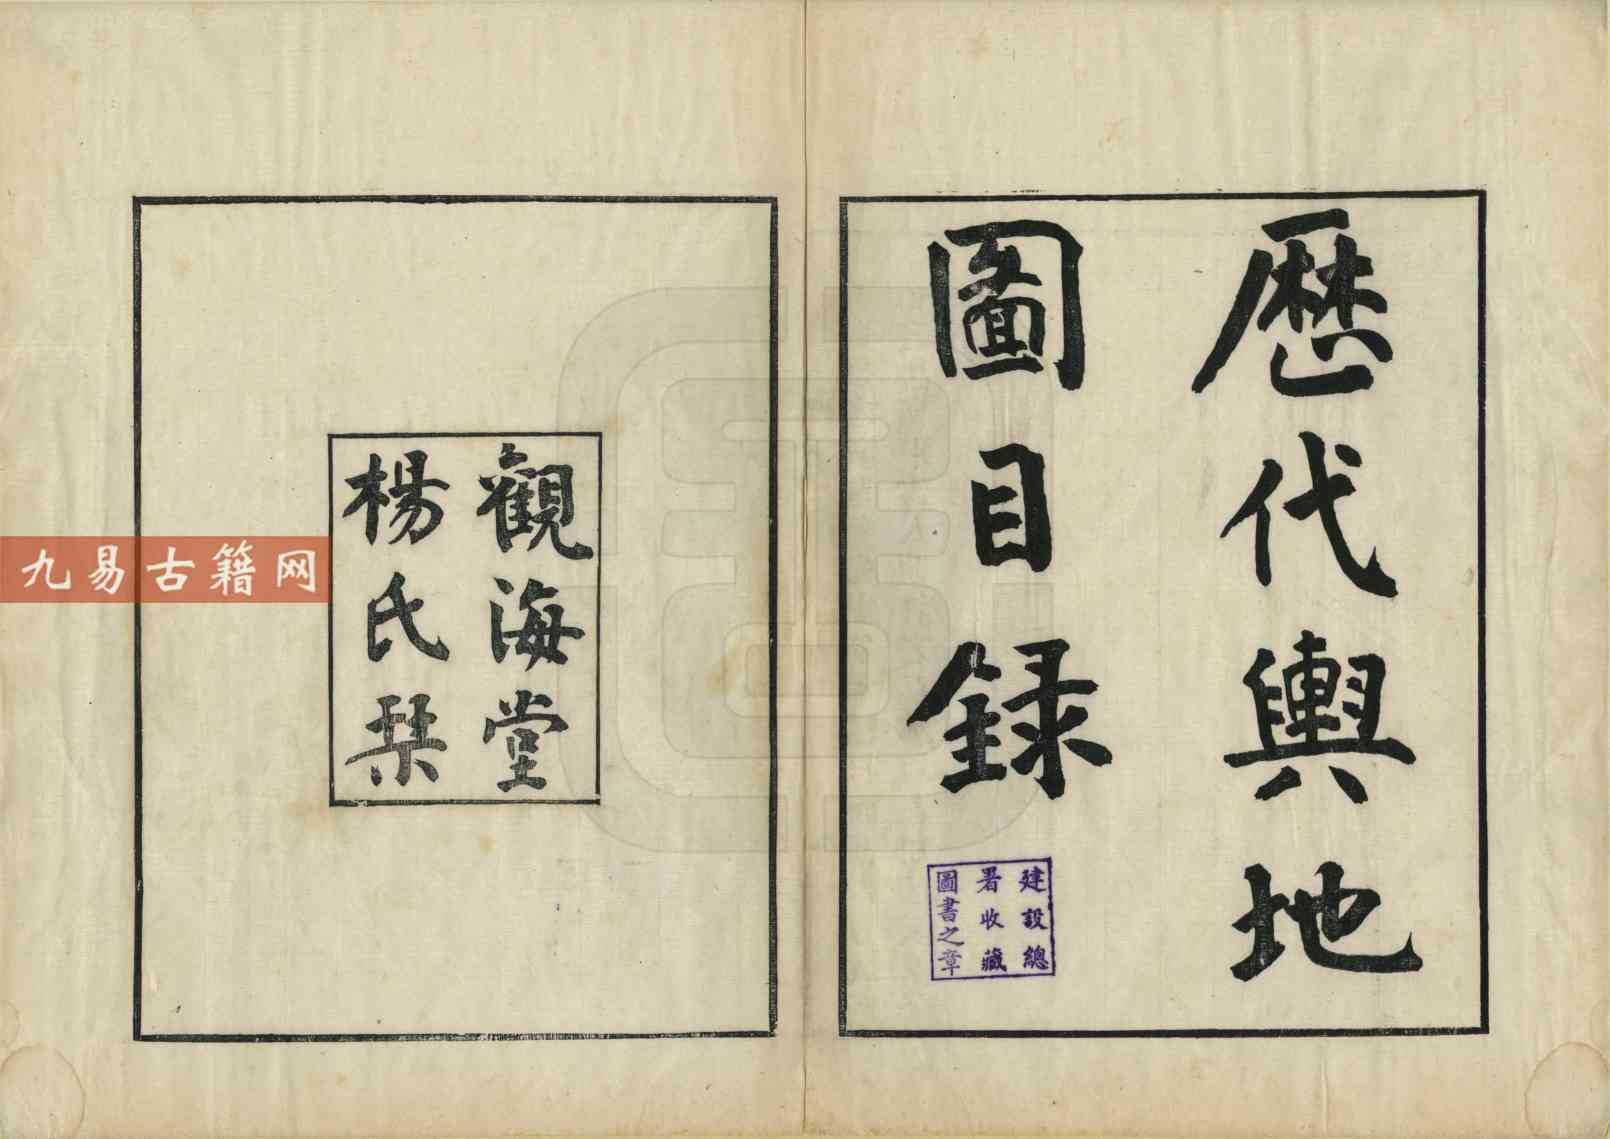 歷代輿地
圖目録
建設總
署收藏
圖書之章
觀海堂
楊氏栞
九易古籍网